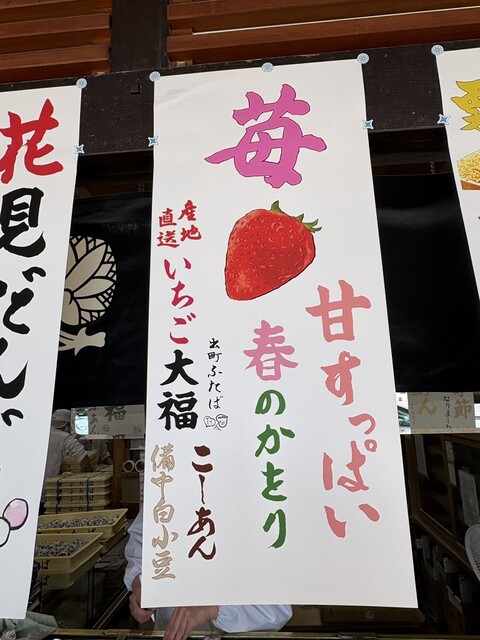 苺
甘すっぱい
春のかをり
出町ふたば
産地
直送
いちご大福
こしあん
備中白小豆
花見だんご